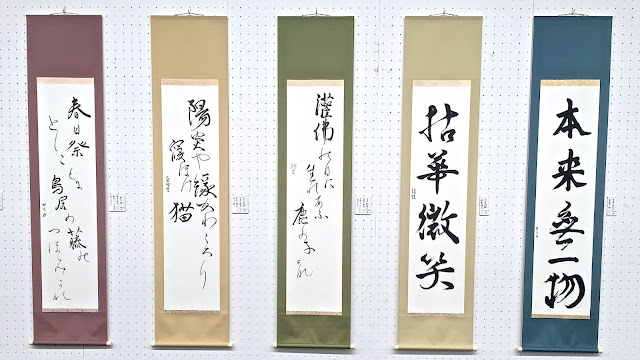 本来無一物
拈華微笑
灌佛の日に
生れあふ
鹿の子哉
陽炎や縁からころり
寝ほけ猫
春日祭
とし〱に鳥居の藤の
つほみ哉